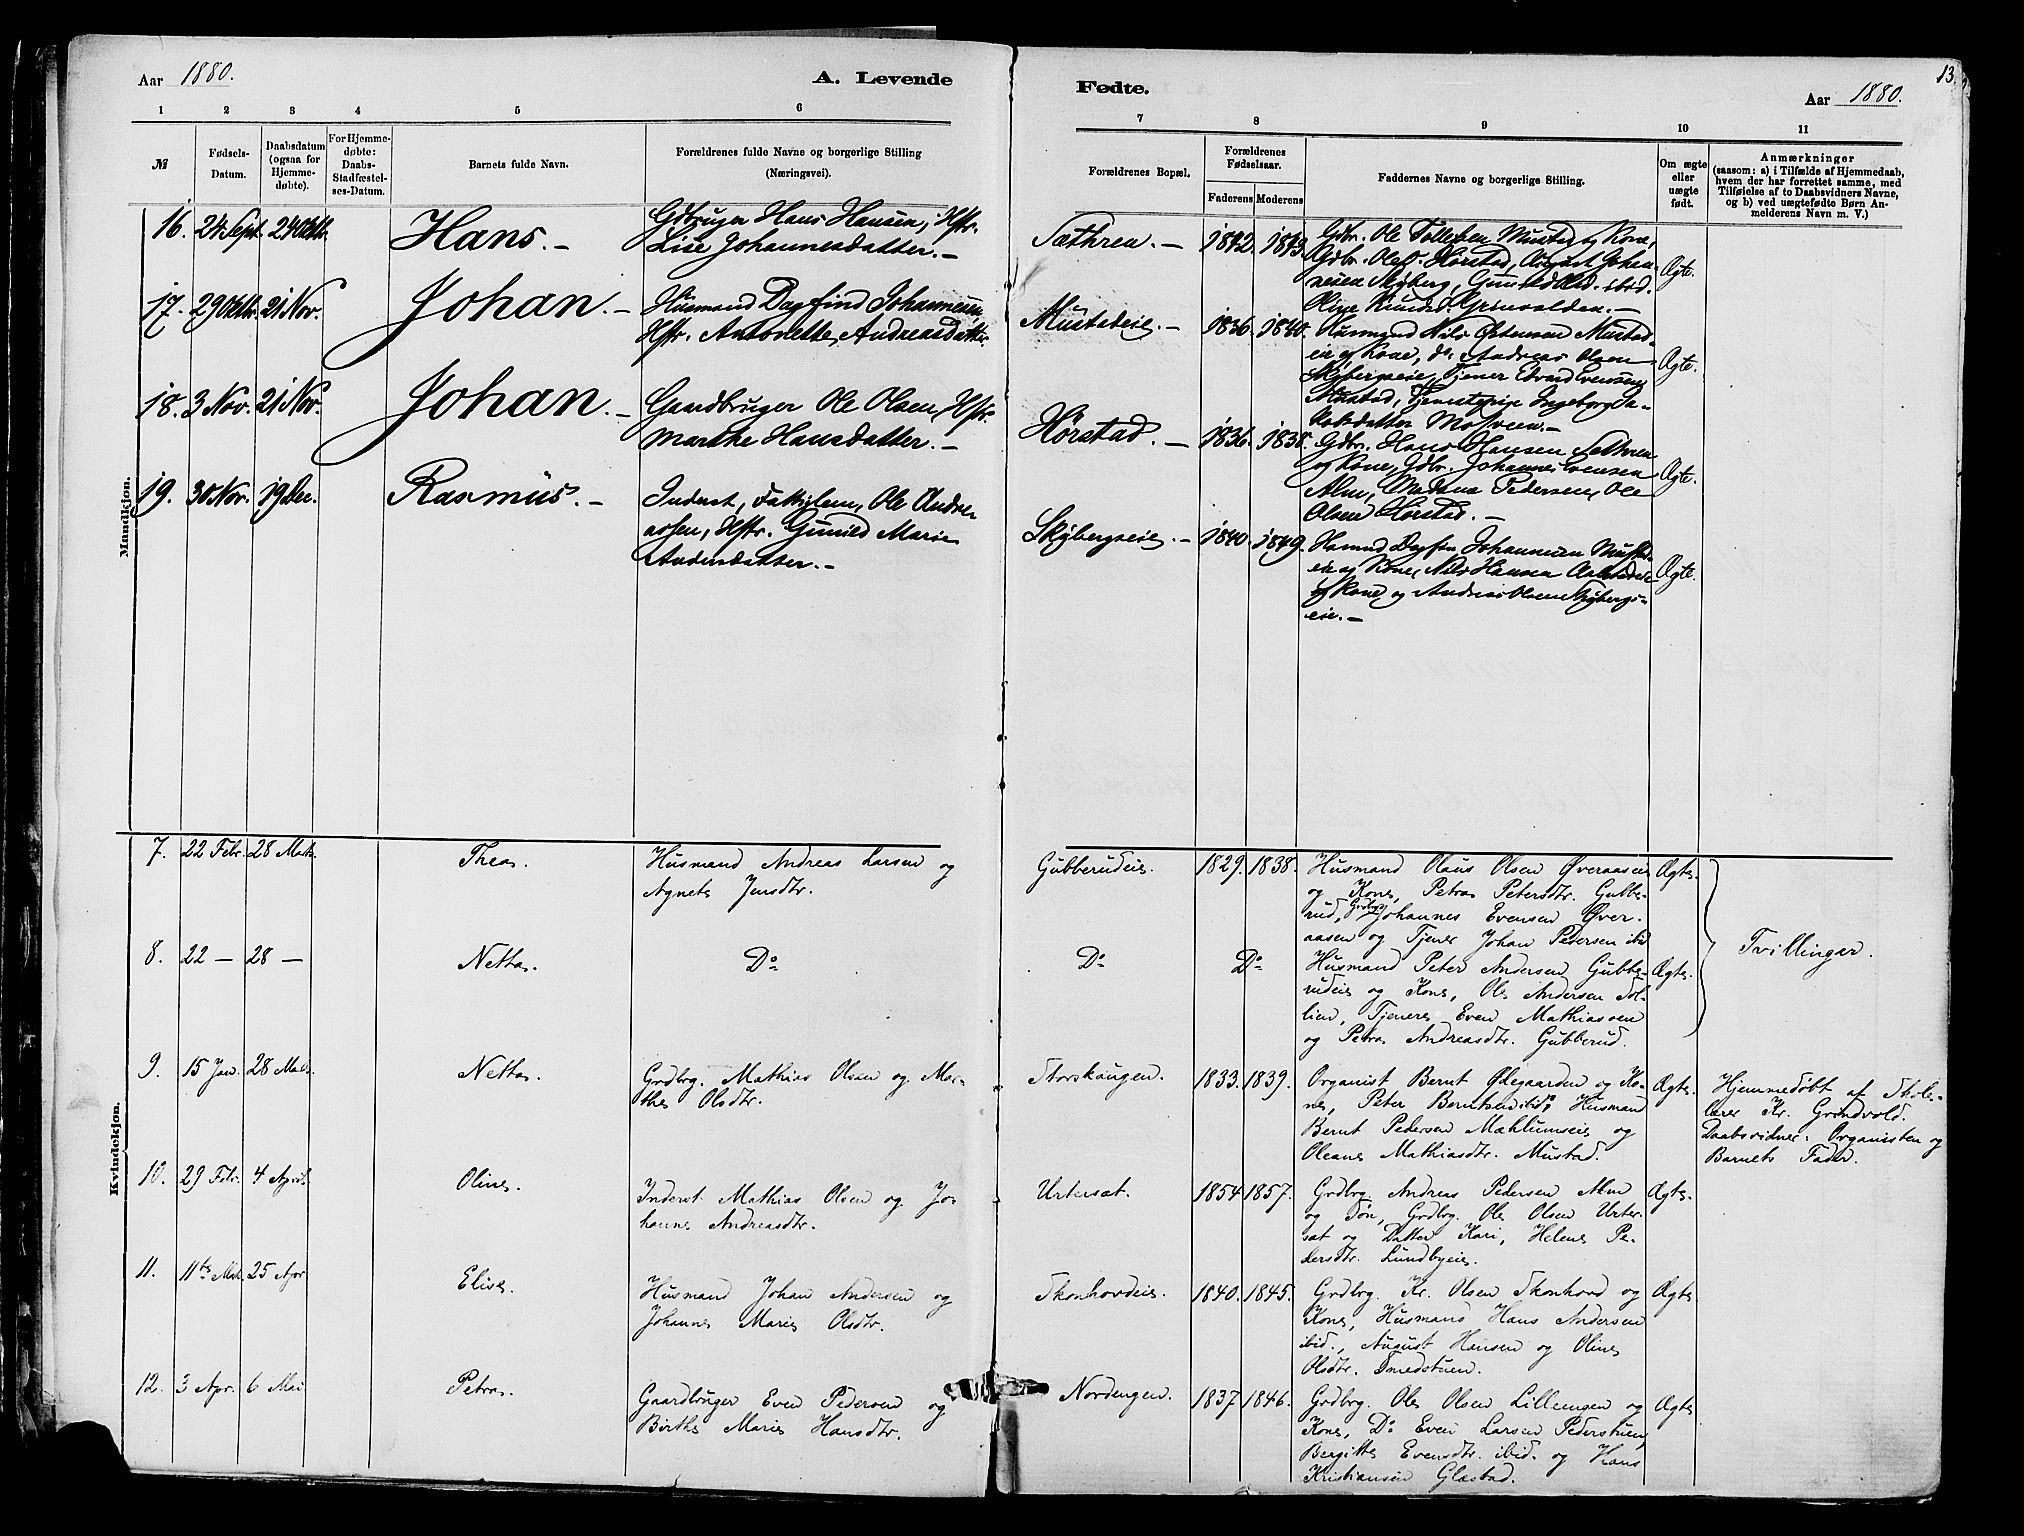 Aar 1880.
A. Levende
Fødte.
Aar 1880.
13.
1 2 3 4 5 6
7 8 9 10 11
№
Fødsels-
Datum.
Daabsdatum
(ogsaa for
Hjemme-
døbte).
For Hjemme-
døbte:
Daabs-
Stadfæstel-
ses-Datum.
Barnets fulde Navn.
Forældrenes fulde Navne og borgerlige Stilling
(Næringsvei).
Forældrenes Bopæl.
Forældrenes
Fødselsaar.
Faderens Moderens
Faddernes Navne og borgerlige Stilling.
Om ægte
eller
uægte
født.
Anmærkninger
(saasom: a) i Tilfælde af Hjemmedaab,
hvem der har forrettet samme, med
Tilføielse af to Daabsvidners Navne,
og b) ved uægtefødte Børn An-
melderens Navn m. V.)
Mandkjøn.
16. 24 Sept. 24 Oktbr.
Hans. –
Gdbruger Hans Hansen, Hstr.
Lise Johannesdatter. –
Sæthren. –
1842. 1843.
Gdbr. Ole Tollefsen Mustad, og Kone,
Gdbr. Ole Hørstad, August Johan-
nesen Skyberg, ibid.
Ægte.
17. 29 Oktbr. 21 Nov.
Johan. –
Husmand Dagfind Johannesen,
Hstr. Antonette Andreasdatter.
Mustadeie. –
1836. 1840.
Husmand Nils Østensen Mustad-
eie og Kone, do. Andreas Olsen
Skybergseie, Tjener Edvard Evensen
Mustad, Tjenestepige Ingeborg Ja-
kobsdatter Mosveen. –
Ægte.
18. 3 Nov. 21 Nov.
Johan. –
Gaardbruger Ole Olsen, Hstr.
Marthe Hansdatter. –
Hørstad. –
1836. 1838.
Gdbr. Hans Hansen Sæthren
og Kone, Gdbr. Johannes Evensen
Alm, Pedersen, Ole
Olsen Hørstad. –
Ægte.
19. 30 Nov. 19 Dec.
Rasmus. –
Inderst, Fattiglem, Ole Andre-
assen, Hstr. Gunild Marie
Andersdatter. –
Skybergseie. –
1840. 1849.
Husmd Dagfin Johannesen Mustad-
eie og Kone, Nils Hansen
og Kone, og Andreas Olsen Skybergs-
eie. –
Ægte.
Kvindekjøn.
7. 22 Febr. 28 Mars.
Thea.
Husmand Andreas Larsen og
Agnete Jensdtr.
Gubberudeie.
1829. 1838.
Husmand Olaus Olsen Øveraasen
og Kone, Petra Petersdtr. Gubbe-
rud, Grdbrg. Johannes Evensen Øver-
aasen og Tjener Johan Pedersen ibid
Ægte.
8. 22 – 28 –
Netta.
Do
Do
Do
Husmand Peter Andersen Gubbe-
rudeie og Kone, Ole Andersen Sol-
lien, Tjenere Even Mathiassen
og Petra Andreasdtr. Gubberud.
Ægte.
Tvillinger.
9. 15 Jan. 28 Mars.
Netta.
Grdbrg. Mathias Olsen og Mar-
the Olsdtr.
Storskaugen.
1833. 1839.
Organist Bernt Ødegaarden og Ko-
ne, Peter Berntsen ibid, Husmand
Bernt Pedersen Mæhlumseie og
Oleane Mathiasdtr. Mustad.
Ægte.
Hjemmedøbt af Skole-
lærer Kr. Grøndvold.
Daabsvidner: Organisten og
Barnets Fader.
10. 29 Febr. 4 April.
Oline.
Inderst Mathias Olsen og Jo-
hanne Andreasdtr.
Urtersæt.
1854 1857.
Grdbrg. Andreas Pedersen Alm
og Søn, Grdbrg. Ole Olsen Urter-
sæt og Datter Kari, Helene Pe-
dersdtr. Lundbyeie.
Ægte.
11. 11te Mars. 25 Apr.
Elise.
Husmand Johan Andersen og
Johanne Marie Olsdtr.
Skonhovdeie.
1840. 1845.
Grdbrg. Kr. Olsen Skonhovd og
Kone, Husmand Hans Andersen
ibid., August Hansen og Oline
Olsdtr. Smedstuen.
Ægte
12. 3 Apr. 6 Mai
Petra.
Gaardbruger Even Pedersen og
Birthe Marie Hansdtr.
Nordengen.
1837 1846.
Grdbrg. Ole Olsen Lilleengen og
Kone, Do Even Larsen Pederstuen,
Bergitte Evensdtr. ibid. og Hans
Kristiansen Glæstad.
Ægte